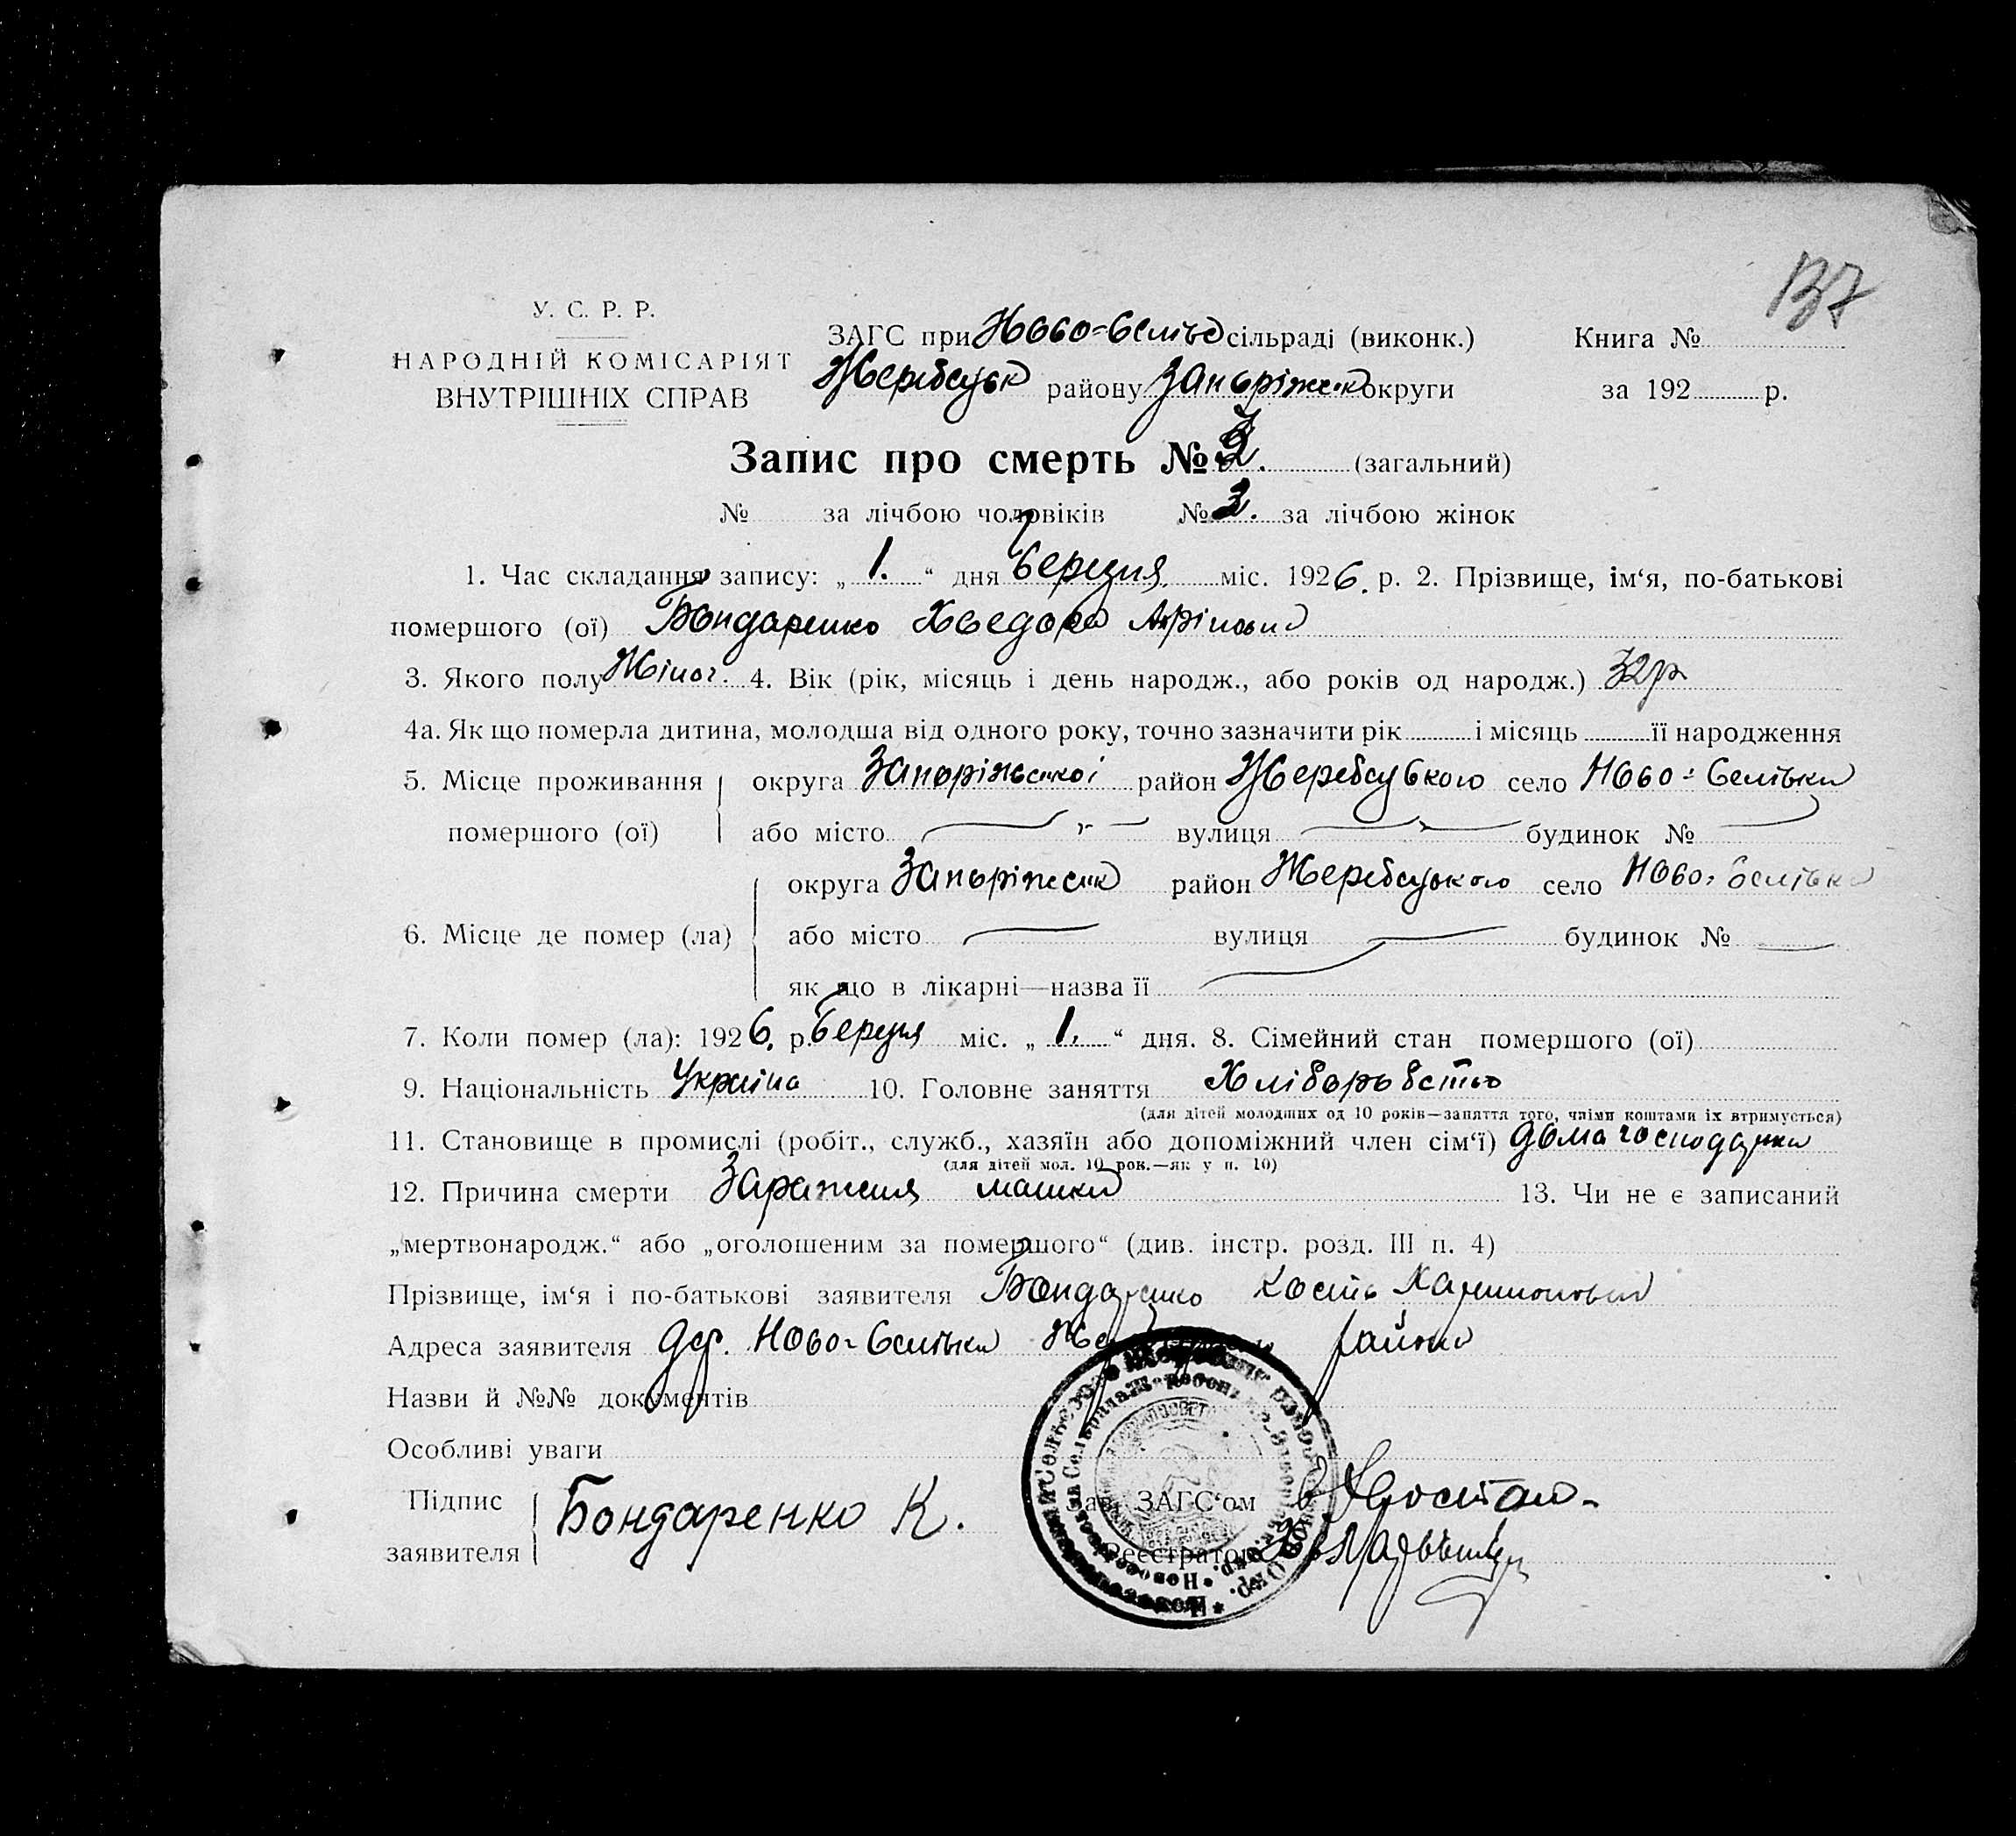 137
У. С. Р. Р.
НАРОДНІЙ КОМІСАРІЯТ
ВНУТРІШНІХ СПРАВ
ЗАГС при Ново-Селів сільраді (виконк.)
Жеребецьк району Запоріжск округи
Книга №
за 192 р.
Запис про смерть № (загальний)
№ за лічбою чоловіків № 3. за лічбою жінок
1. Час складання запису: „ 1. “ дня березня міс. 1926. р. 2. Прізвище, ім‘я, по-батькові
помершого (ої) Бондаренко
3. Якого полу Жіноч. 4. Вік (рік, місяць і день народж., або років од народж.) 32 р
4а. Як що померла дитина, молодша від одного року, точно зазначити рік і місяць її народження
5. Місце проживання помершого (ої) округа район Жеребецького село Ново-Селівки
або місто вулиця будинок №
6. Місце де помер (ла) округа Запоріжськ район Жеребецького село Ново-Селівка
або місто вулиця будинок №
як що в лікарні—назва її
7. Коли помер (ла): 1926. р. березня міс. „ 1. “ дня. 8. Сімейний стан помершого (ої)
9. Національність Україна 10. Головне заняття Хліборобство
(для дітей молодших од 10 років—заняття того, чиїми коштами їх втримується)
11. Становище в промислі (робіт., служб., хазяїн або допоміжний член сім‘ї)
(для дітей мол. 10 рок.—як у п. 10)
12. Причина смерти Зараженія матки 13. Чи не є записаний
„мертвонародж.“ або „оголошеним за помершого“ (див. інстр. розд. III п. 4)
Прізвище, ім‘я і по-батькові заявителя Бондаренко Кость
Адреса заявителя Ново-Селівки району
Назви й №№ документів
Особливі уваги
Підпис заявителя Бондаренко К.
Зав. ЗАГС‘ом
Реєстратор